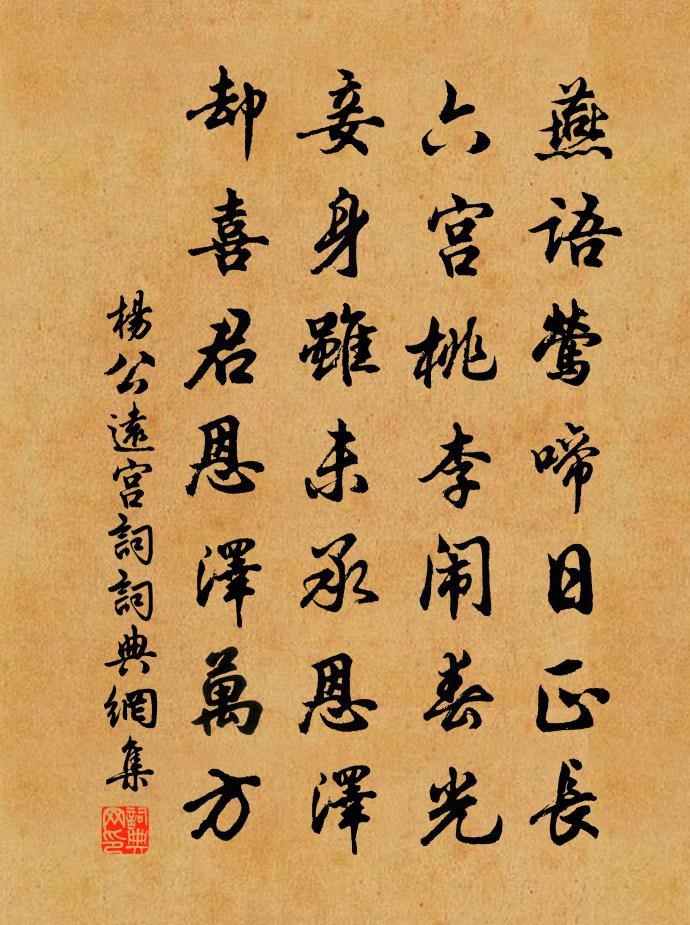 燕語鶯啼日正長
六宫桃李闹春光
妾身雖未承恩澤
却喜君恩澤萬方
楊公遠宫詞詞典網集
詞典网印